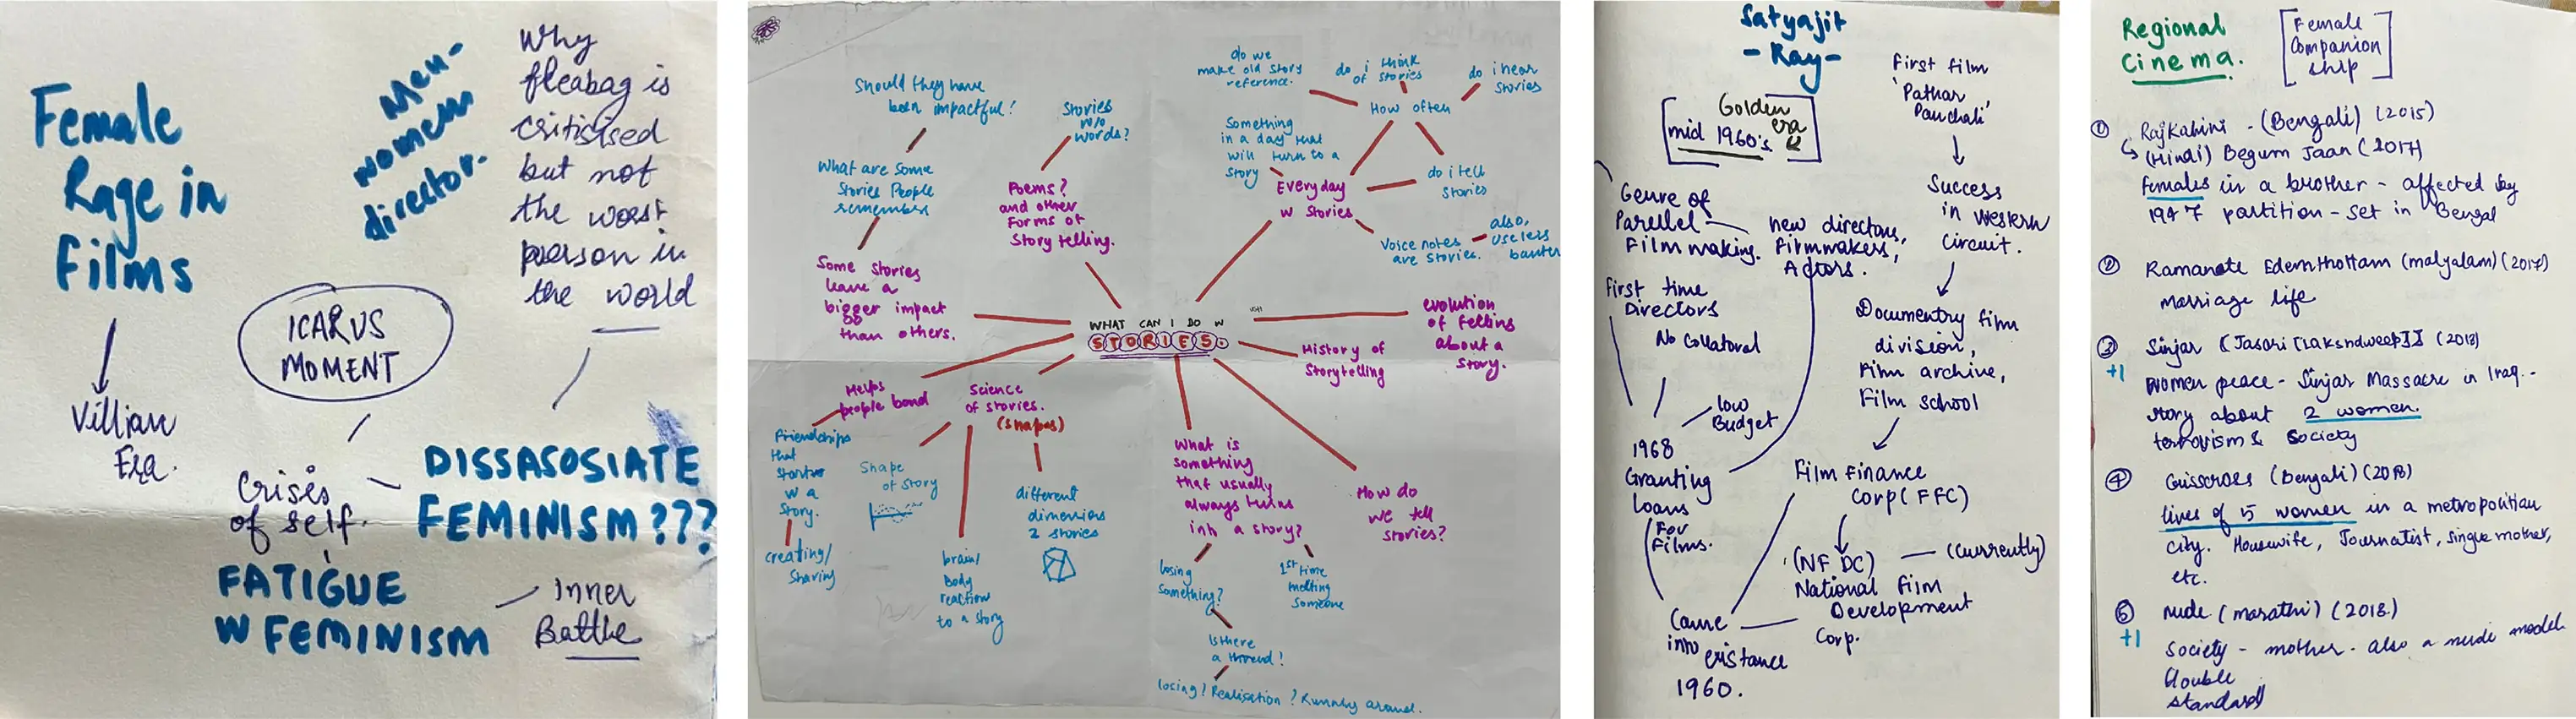 Female
Rage in
Films
Villian
Era.
Men-
women
director.
Why
fleabag is
criticised
but not
the worst
person in
the world
ICARUS
MOMENT
Crises
of self.
DISSASOSIATE
FEMINISM???
FATIGUE
W FEMINISM
Inner
Battle
Should they have
been impactful?
What are some
Stories People
remembers
Some stories
leave a
bigger impact
than others.
Stories
w/o
words?
Poems?
and other
Forms of
Story telling.
do we
make old story
reference.
do i think
of stories
do i hear
stories
How often
do i tell
stories
Something
in a day that
will turn to a
story
Everyday
w Stories
Voice notes
are stories.
also,
useless
banter
WHAT CAN I DO W
STORIES.
evolution
of fellins
about a
story.
History of
Storytelling
Helps
people bond
Friendships
that
started
w a
Story.
creating/
Sharing
Science
of stories.
(shapes)
Shape
of story
brain/
Body
reaction
to a story
different
dimensions
2 stories
What is
something
that usually
always turns
into a story?
losing
something?
1st time
meeting
someone
Is there
a thread?
losing? Realisation? Running around.
How do
we tell
stories?
Satyajit
- Ray -
Golden
era
mid 1960's
First film
'Pathar
Panchali'
Success
in western
Circuit.
Documentry film
division,
Film archive,
Film school
Film Finance
Corp (FFC)
(NFDC) — (currently)
National Film
Development
Corp.
Genre of
Parellel
Film making.
new directors,
Filmmakers,
Actors.
First time
Directors
No Collatoral
low
Budget
1968
Granting
loans
For
Films.
Came
into existance
1960.
Regional
Cinema.
[Female
Companion
ship]
① Rajkahini - (Bengali) (2015)
(Hindi) Begum Jaan (2017)
Females in a brother - affected by
1947 partition - set in Bengal
② Ramanate Edemthottam (malyalam) (2017)
marriage life
③ Sinjar [Jasari [Lakshdweep]] (2018)
+1
women peace - Sinjar Massacre in Iraq. -
story about 2 women.
terrorism & society
④ (Bengali) (2018)
lives of 15 women in a metropolitian
city. Housewife, Journalist, single mother,
etc.
⑤ nude (marathi) (2018)
+1
Society - mother - also a nude model
double
standard